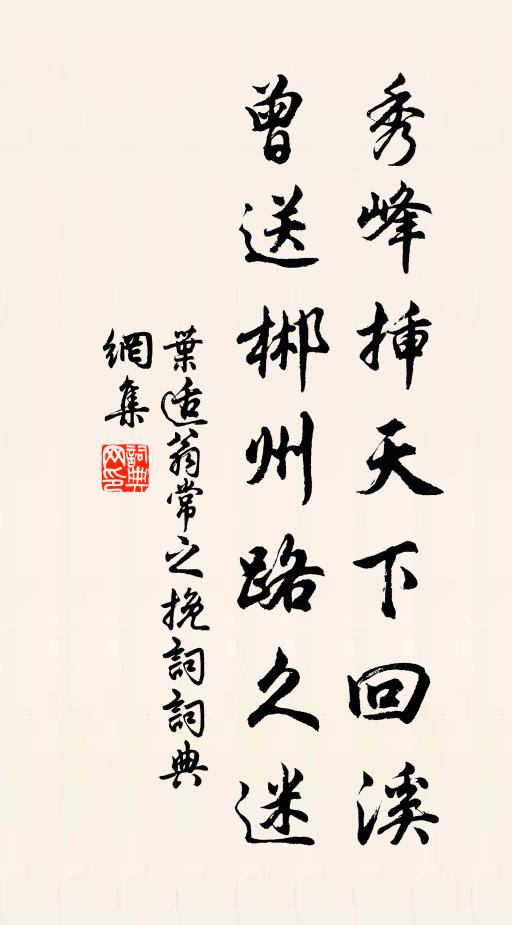 秀峰揷天下回溪
曾送郴州路久迷
葉适翁常之挽詞詞典
網集
詞典
网印